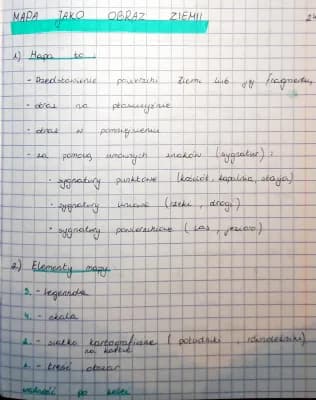 MAPA JAKO OBRAZ ZIEMII
1) Mapa to
- Przedstawienie powierzchi Ziemi lub jej fragmentu,
- obraz na płaszczyźnie
- obraz w pomniejszeniu
- za pomocą umownych znaków (sygnatur):
• sygnatury punktowe (kościół, kopalnia, stacja)
• sygnatury liniowe (rzeki, drogi)
• sygnatury powierzchniowe (las, jezioro)
2) Elementy mapy
3. - legenda
4. - skala
2. - siatka kartograficzna (południki, równoleżniki)
na kartce
1. - treść, obszar
po